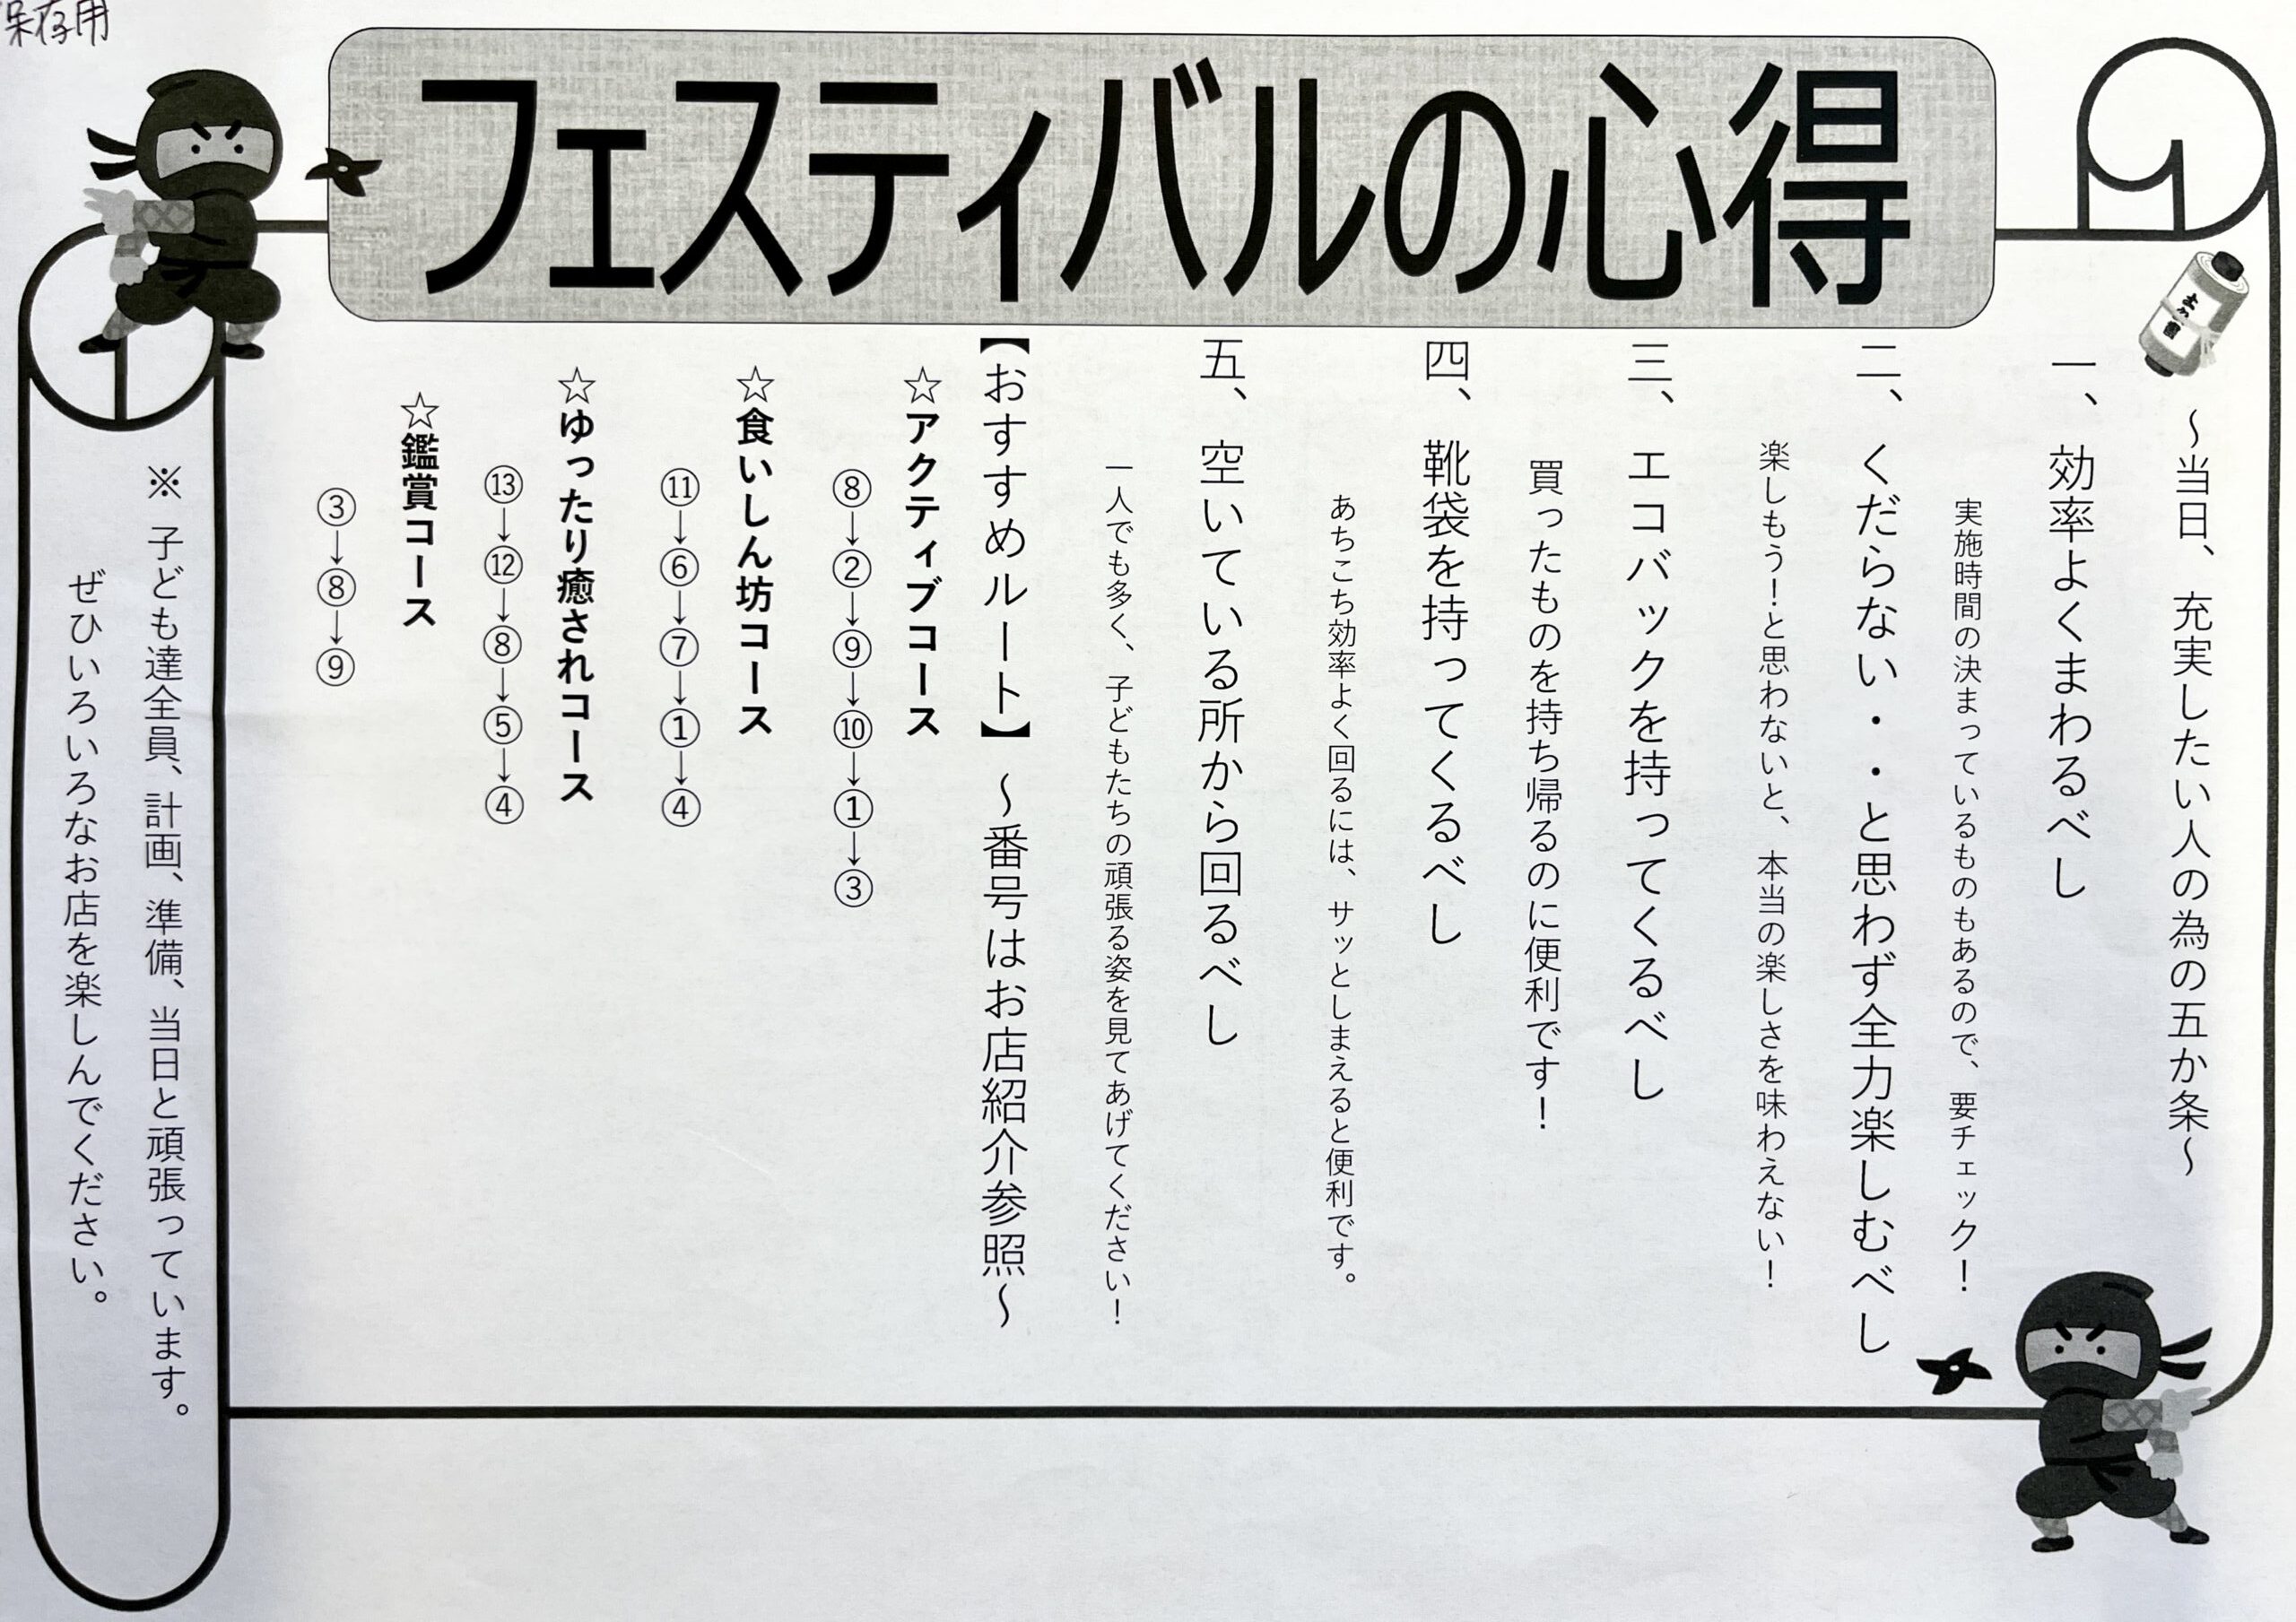 保存用
フェスティバルの心得
～当日、充実したい人の為の五か条～
一、効率よくまわるべし
実施時間の決まっているものもあるので、要チェック！
二、くだらない・・と思わず全力楽しむべし
楽しもう！と思わないと、本当の楽しさを味わえない！
三、エコバックを持ってくるべし
買ったものを持ち帰るのに便利です！
四、靴袋を持ってくるべし
あちこち効率よく回るには、サッとしまえると便利です。
五、空いている所から回るべし
一人でも多く、子どもたちの頑張る姿を見てあげてください！
【おすすめルート】～番号はお店紹介参照～
☆アクティブコース
⑧→②→⑨→⑩→①→③
☆食いしん坊コース
⑪→⑥→⑦→①→④
☆ゆったり癒されコース
⑬→⑫→⑧→⑤→④
☆鑑賞コース
③→⑧→⑨
※ 子ども達全員、計画、準備、当日と頑張っています。
ぜひいろいろなお店を楽しんでください。